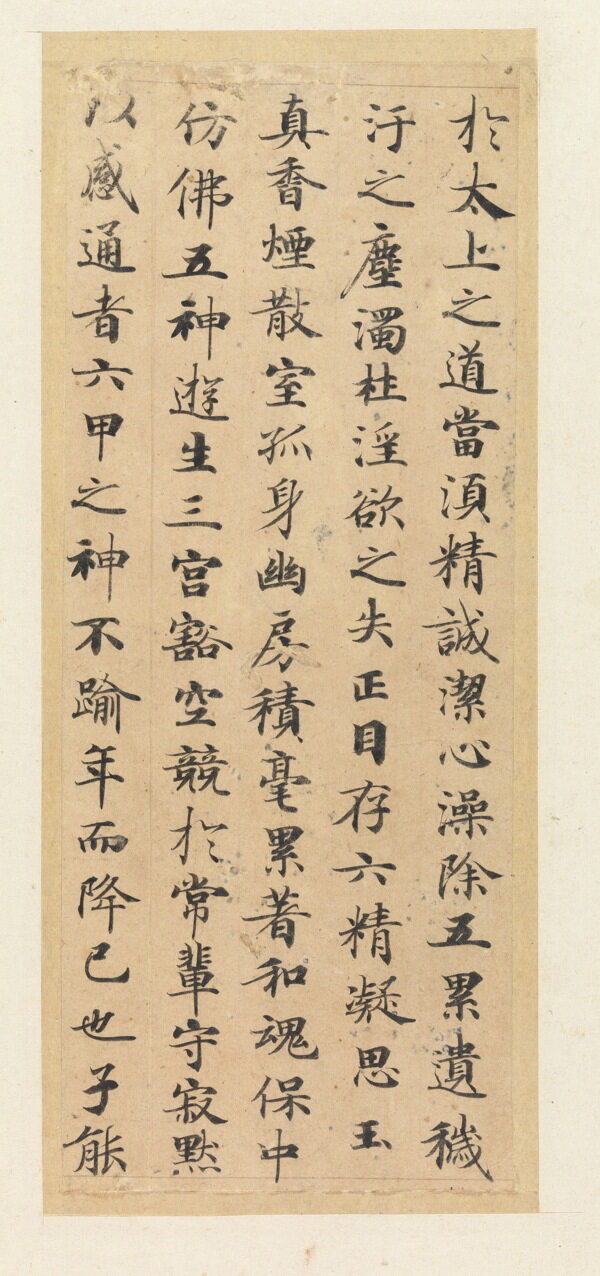 於太上之道當湏精誠潔心澡除五累遺穢
汙之塵濁柱淫欲之失正目存六精凝思玉
真香煙散室孤身幽房積毫累著和魂保中
仿佛五神遊生三宮豁空競於常輩守寂默
以感通者六甲之神不踰年而降已也子能